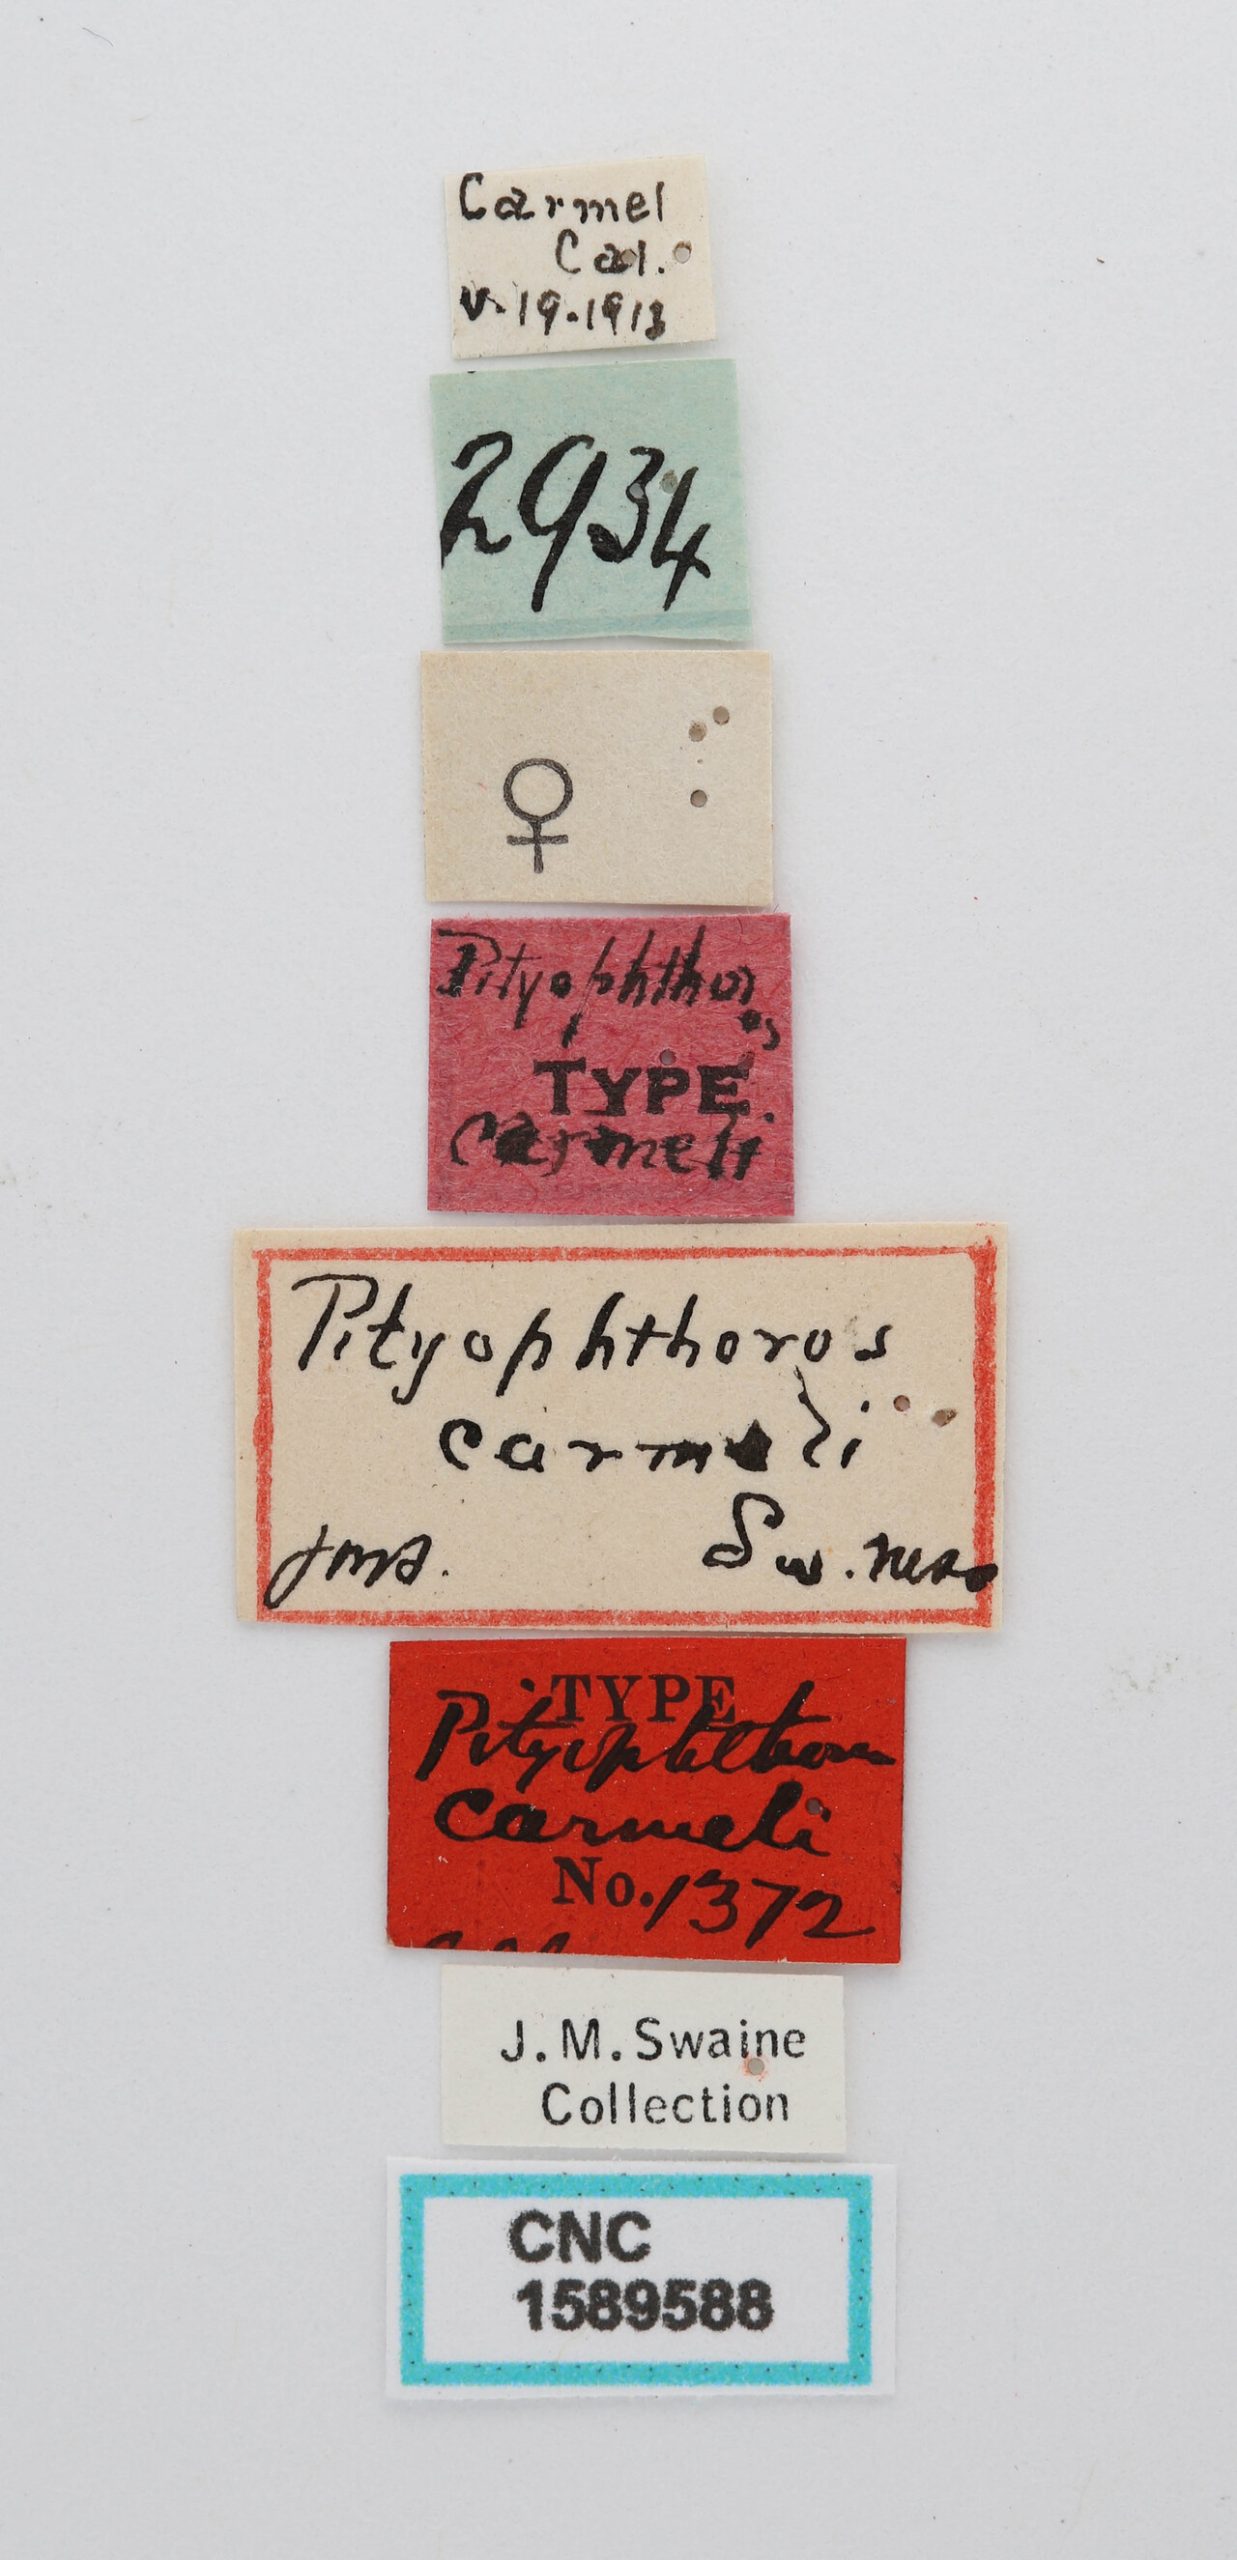 Carmel
Cal.
V-19-1913
2934
♀
Pityophthor
os
TYPE.
carmeli
Pityophthoros
carmeli
JMS. Sw.
TYPE
carmeli
No. 1372
J. M. Swaine
Collection
CNC
1589588